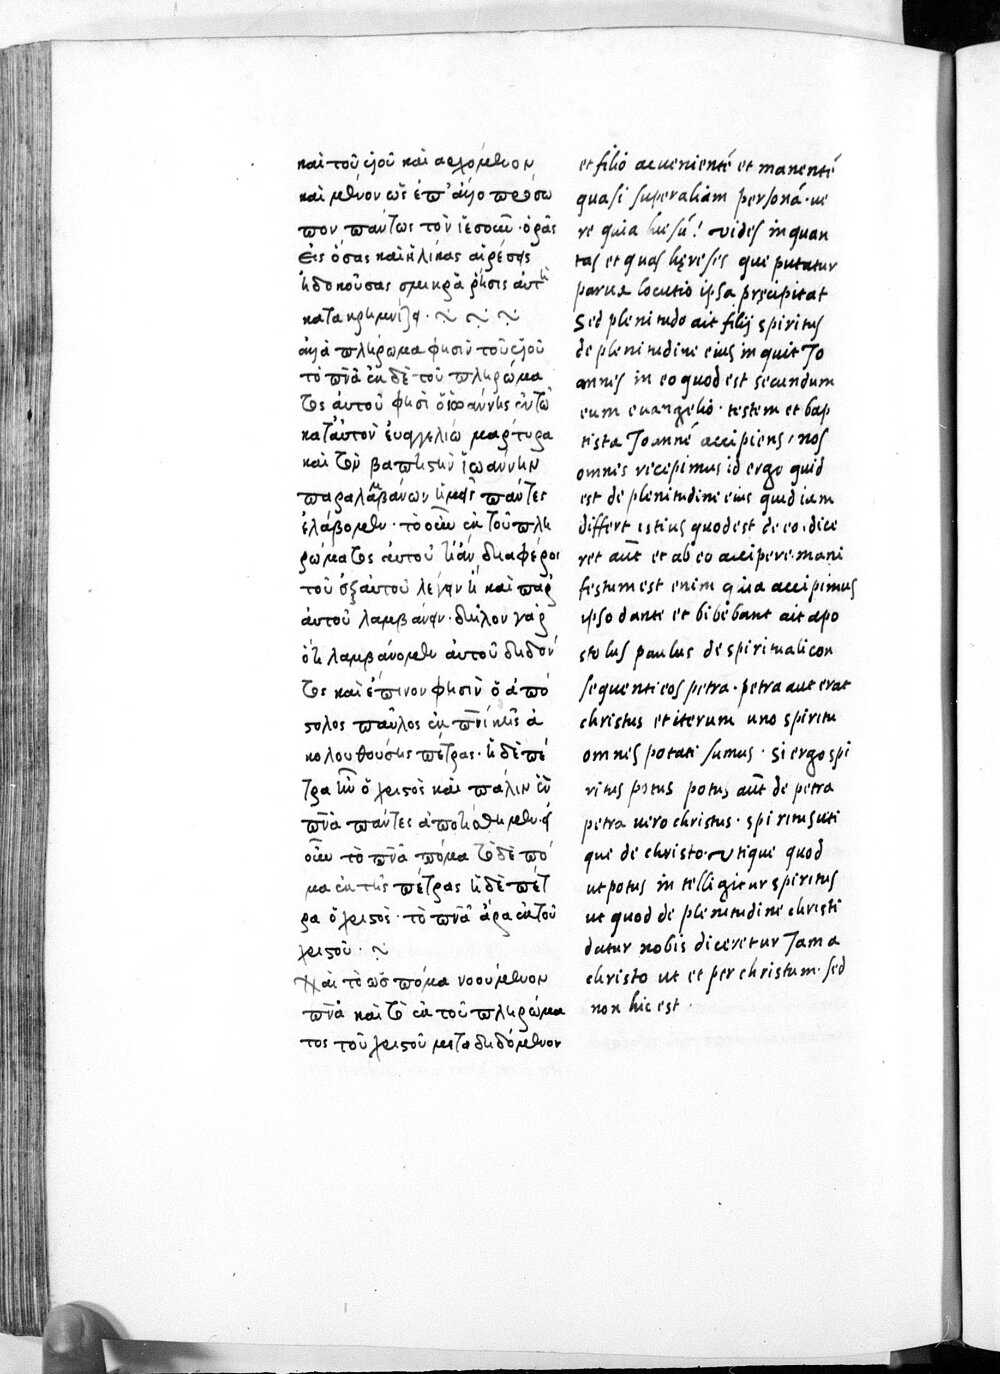 καὶ τοῦ υἱοῦ καὶ ἀρχόμενον
καὶ μένον ὡς ἐπ' ἄλλο πρόσω
πον πάντως τὸν ἰησοῦν · ὁρᾶς
εἰς ὅσας καὶ ἡλίκας αἱρέσεις
ἡ δοκοῦσας σμικρὰ ῥῆσις αὐτὴ
κατακρημνίζει ·
ἀλλὰ πλήρωμα φησὶν τοῦ υἱοῦ
τὸ πνᾶ ἐκ δὲ τοῦ πληρώμα
τος αὐτοῦ φησὶ ὁ ἰωάννης ἐν τῶ
κατ' αὐτὸν εὐαγγελίω μαρτυρα
καὶ τὸν βαπτιστὴν ἰωάννην
παραλαμβάνων ἡμεῖς πάντες
ἐλάβομεν · τὸ οὖν ἐκ τοῦ πλη
ρώματος αὐτοῦ τί ἂν διαφέροι
τοῦ ἐξ αὐτοῦ λέγειν ἢ καὶ παρ'
αὐτοῦ λαμβάνειν · δῆλον γὰρ
ὅτι λαμβάνομεν αὐτοῦ διδόν
τος καὶ ἔπινον φησὶν ὁ ἀπό
στολος παῦλος ἐκ πνικῆς ἀ
κολουθούσης πέτρας · ἡ δὲ πέ
τρα ἦν ὁ χριστὸς καὶ πάλιν ἓν
πνᾶ πάντες ἐποτίσθημεν · εἰ
οὖν τὸ πνᾶ πόμα τὸ δὲ πό
μα ἐκ τῆς πέτρας ἡ δὲ πέτ
ρα ὁ χριστὸς · τὸ πνᾶ ἄρα ἐκ τοῦ
χριστοῦ ·
Καὶ τὸ ὡς πόμα νοούμενον
πνᾶ καὶ τὸ ἐκ τοῦ πληρώμα
τος τοῦ χριστοῦ μεταδιδόμενον
et filio aduenientē et manentē
quasi super aliam personā · ue
re quia hiesū! vides in quan
tas et quas hęreses que putatur
parua locutio ipsa pręcipitat
Sed plenitudo ait filij spiritus
de plenitudine eius inquit Jo
annes in eo quod est secundum
eum euangelio · testem et bap
tista Joannē accipiens, nos
omnes recepimus id ergo quid
est de plenitudine eius quid iam
differt istius quod est de eo. dice
ret aut̄ et ab eo accipere. mani
festum est enim quia accipimus
ipso dante et bibebant ait apo
stolus paulus de spirituali con
sequenti eos petra · petra aut erat
christus et iterum uno spiritu
omnes potati sumus · Si ergo spi
ritus potus potus aut̄ de petra
petra uero christus · spiritus uti
que de christo · Utique quod
ut potus intelligitur spiritus
ut quod de plenitudine christi
datur nobis diceretur Jam a
christo ut et per christum · sed
non hic est ·